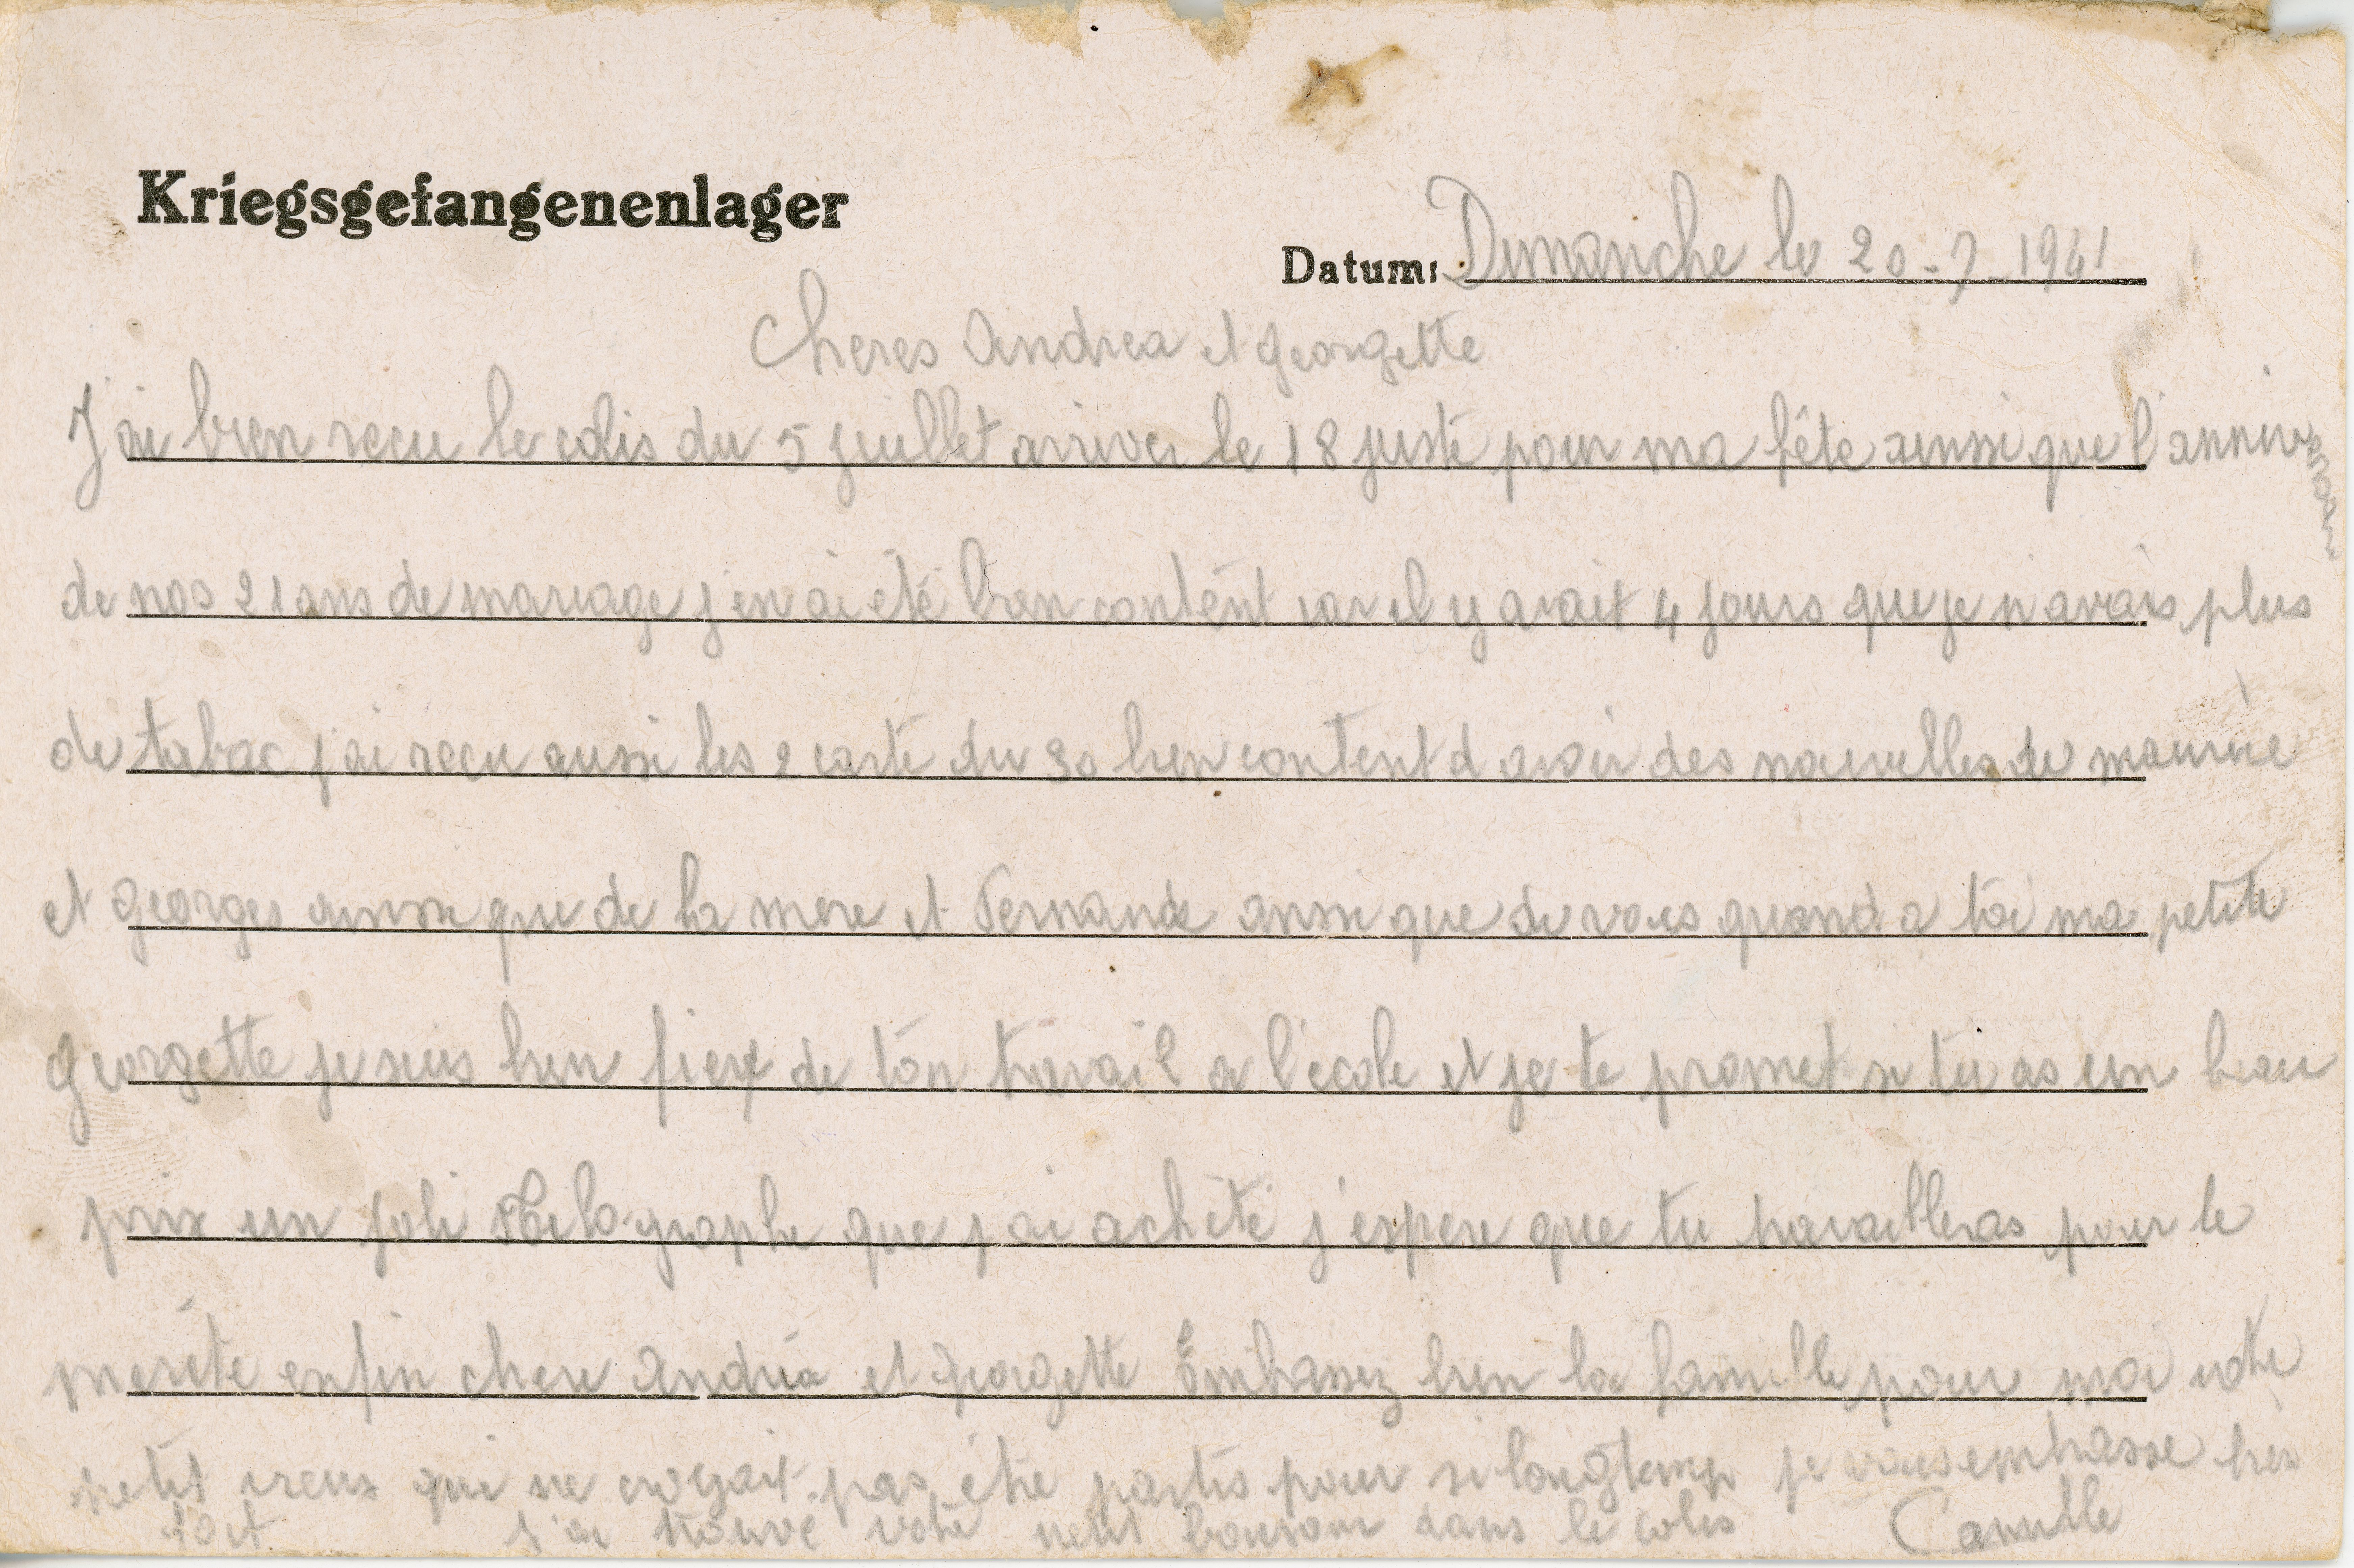 Kriegsgefangenenlager
Datum: Dimanche le 20-7-1941
Cheres Andrea et Georgette
J'ai bien recu le colis du 5 juillet arriver le 18 juste pour ma fête ainsi que l'anniversaire
de nos 21 ans de mariage j'en ai été bien content car il y avait 4 jours que je n'avais plus
de tabac j'ai recu aussi les 2 carte du 30 bien content d avoir des nouvelles de maurice
et Georges ainsi que de la mere et Fernande ainsi que de vous quand a toi ma petite
Georgette je suis bien fier de ton travail a l'école et je te promet si tu as un beau
prix un joli que j'ai acheté j'espere que tu travailleras pour le
merité enfin chere Andréa et Georgette Embrassez bien la famille pour moi votre
petit vieux qui ne croyait pas être partis pour si longtemp je vous embrasse bien
fort j'ai trouvé votre petit dans le colis Camille